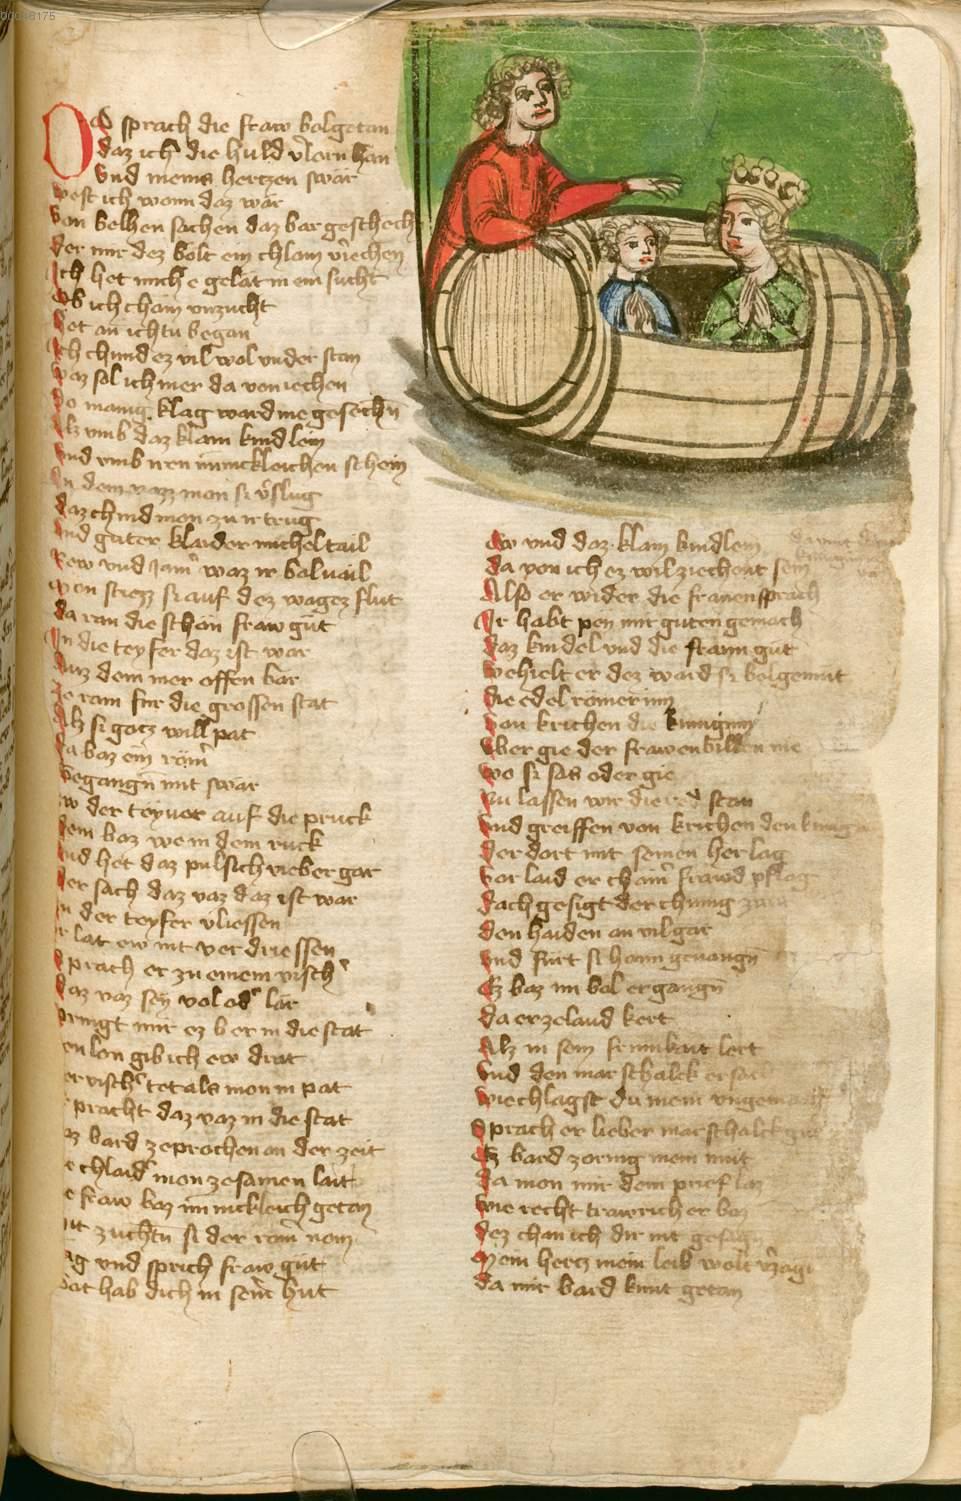 Do sprach die fraw bolgetan
daz ich die huld vlorn han
vnd meins hertzen swar
west ich wann daz war
von belhen sachen daz bar geschech
der mir dez bolt ein chlain viechen
Ich het mich e gelat in ein sucht
ob ich cham vnzucht
het an ichtu began
Ich chund ez vil wol vnder stan
waz sol ich mer da von iechen
so manig klag ward nie gesechn
Alz vmb daz klain kindlein
vnd vmb iren mincklichen schein
In dem vazz mon si vslug
daz chind mon zu ir trug
vnd guter klaider michel tail
Rew vnd Jam waz ir bolvail
Mon stiezz si auf dez wagez flut
da ran die schon fraw gut
In die teyfer daz ist war
Auz dem mer offen bar
Ze ram fur die grossen stat
Alz si gotz will pat
Da baz ein röm
gegangn mit swar
der teyuer auf die pruck
dem baz we in dem ruck
vnd het daz pulsich vieber gar
Der sach daz vaz daz ist war
In der teyfer vliessen
Ir lat ew nit verdriessen
Sprach er zu einem visch
daz vaz sey vol od lar
pringt mir ez her in die stat
en lon gib ich ew drat
er visch tet als mon in pat
pracht daz vaz in die stat
az bard zeprochen an der zeit
e chlaid mon zesamen lait
e fraw baz mincklich getan
it zuchtn si der röm nom
ag vnd sprich fraw gut
Got hab dich in sein hut
ew vnd daz klain kindlein
da von ich ez wil ziechent sein
Also er wider die frauen sprach
Ir habt pey mir guten gemach
daz kindel vnd die frawn gut
behielt er dez ward si bolgemut
die edel römerinn
von krichen die kuniginn
vber gie der frawen billen nie
wo si sas oder gie
Nu lassen wir die red stan
vnd greiffen von krichen den kunig
der dort mit seinen her lag
vor laid er chain frawd pflag
dach gesigt der chunig
den haiden an vil gar
vnd furt si haim geuangn
Ez baz im bol ergangn
da er zeland kert
Alz in sein frumkait lert
vnd den marschalck er sach
wie chlagst du mein vngemach
Sprach er lieber marschalck gut
Ez bard zornig mein mut
Da mon mir dein prief laz
wie recht trawrich er baz
dez chan ich dir nit gesagn
Mein hertz mein leib wolt vzagn
da mir bard kunt getan